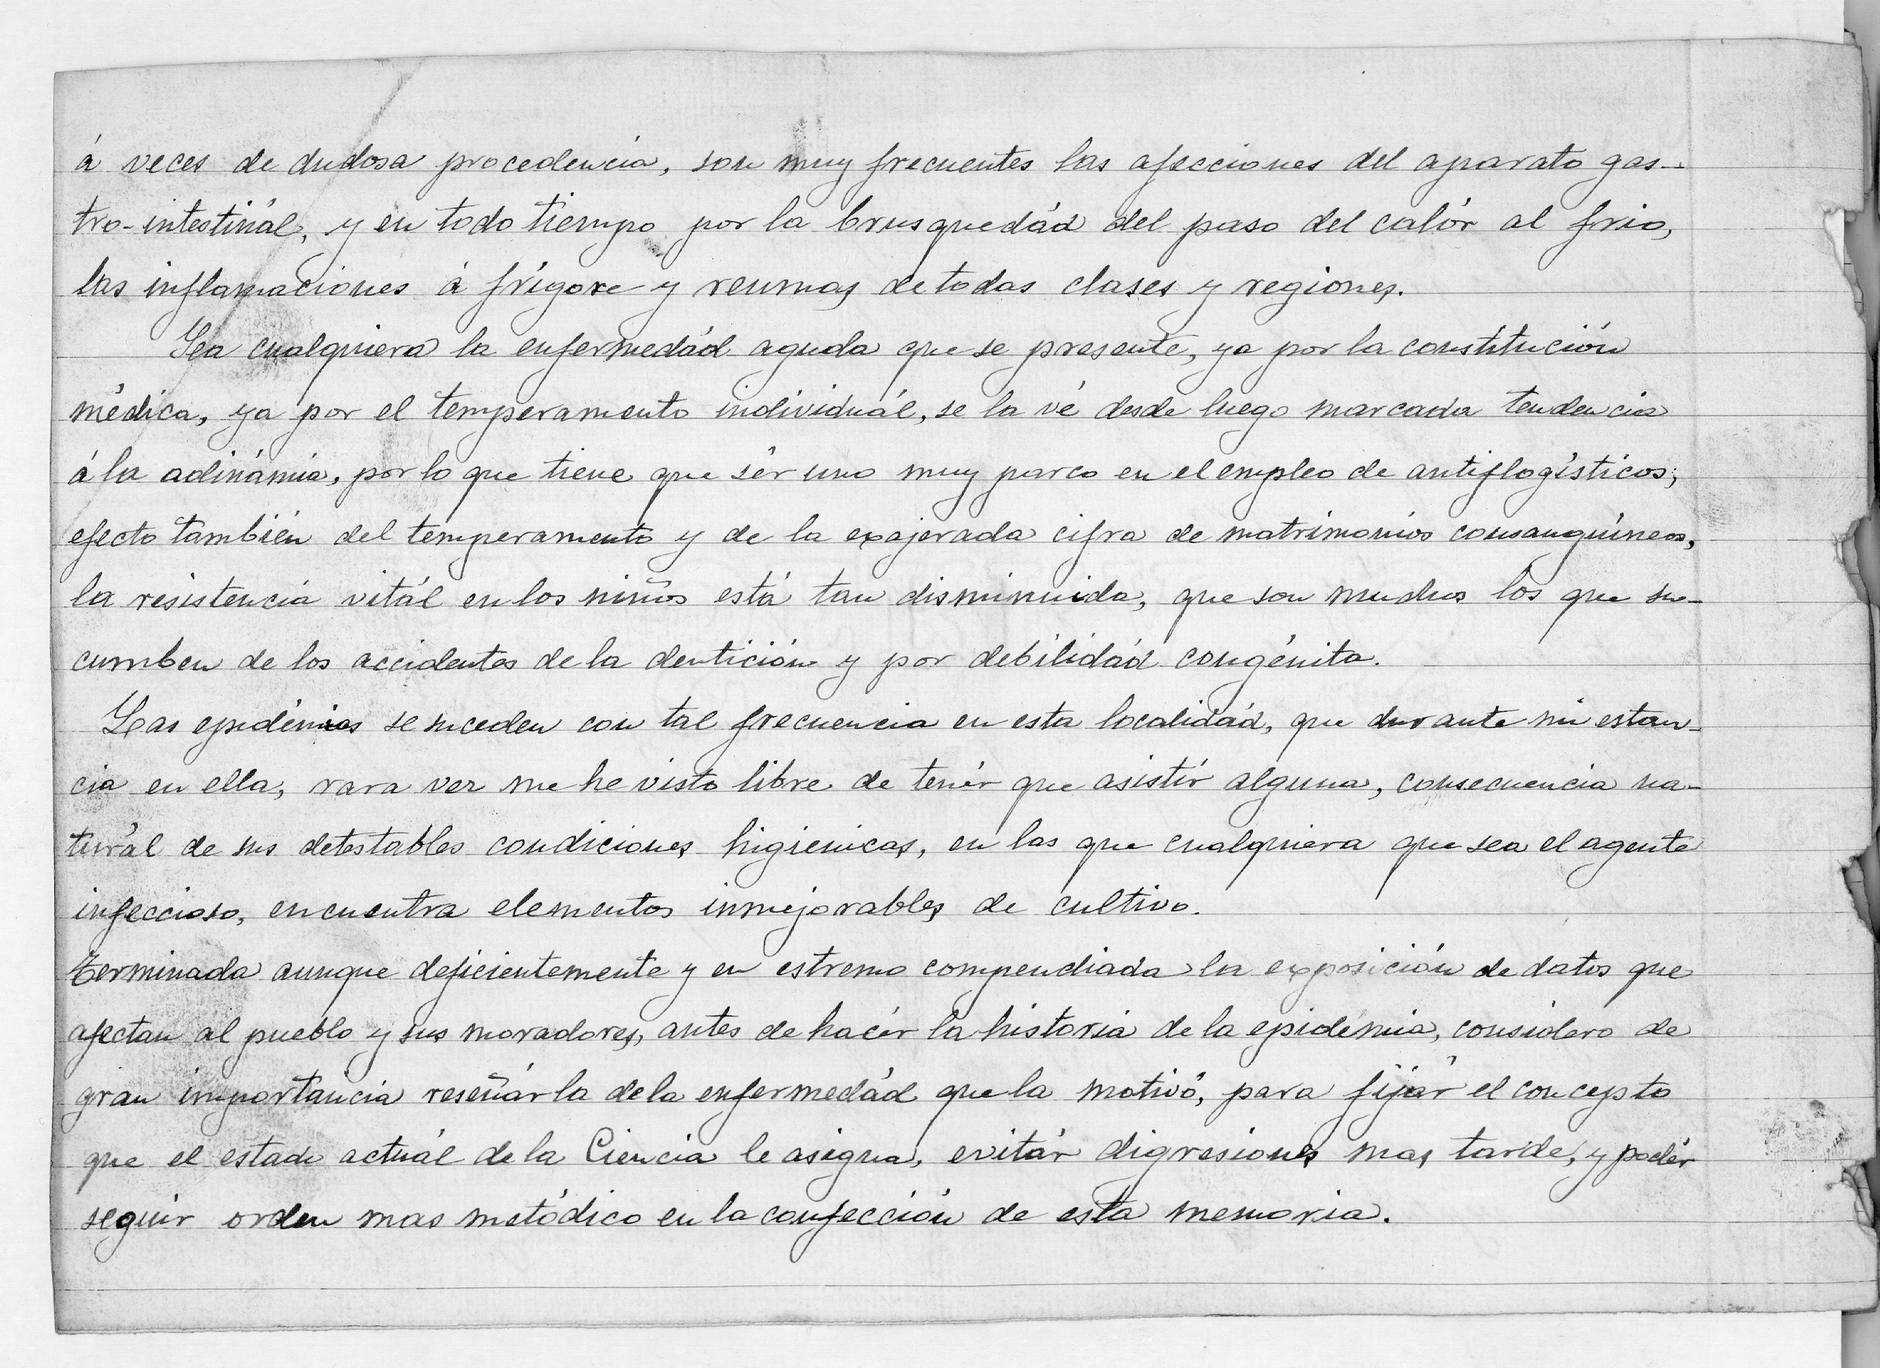 á veces de dudosa procedencia, son muy frecuentes las afecciones del aparato gas-
tro-intestinál, y en todo tiempo por la brusquedád del paso del calór al frio,
las inflamaciones á frígore y reumas de todas clases y regiones.
Sea cualquiera la enfermedád aguda que se presente, ya por la constitución
médica, ya por el temperamento individuál, se la vé desde luego marcada tendencia
á la adinámia, por lo que tiene que sér uno muy parco en el empleo de antiflogísticos;
efecto también del temperamento y de la exajerada cifra de matrimonios consanguíneos,
la resistencia vitál en los niños está tan disminuida, que son muchos los que su-
cumben de los accidentes de la dentición y por debilidád congénita.
Las epidémias se suceden con tal frecuencia en esta localidád, que durante mi estan-
cia en ella, rara vez me he visto libre de tenér que asistír alguna, consecuencia na-
turál de sus detestables condiciones higienicas, en las que cualquiera que sea el agente
infeccioso, encuentra elementos inmejorables de cultivo.
Terminada aunque deficientemente y en estremo compendiada la exposición de datos que
afectan al pueblo y sus moradores, antes de hacér la historia de la epidémia, considero de
gran importáncia reseñár la de la enfermedád que la motivó, para fijár el concepto
que el estado actuál de la Ciencia le asigna, evitár digresiones mas tarde, y podér
seguír orden mas metódico en la confección de esta memoria.